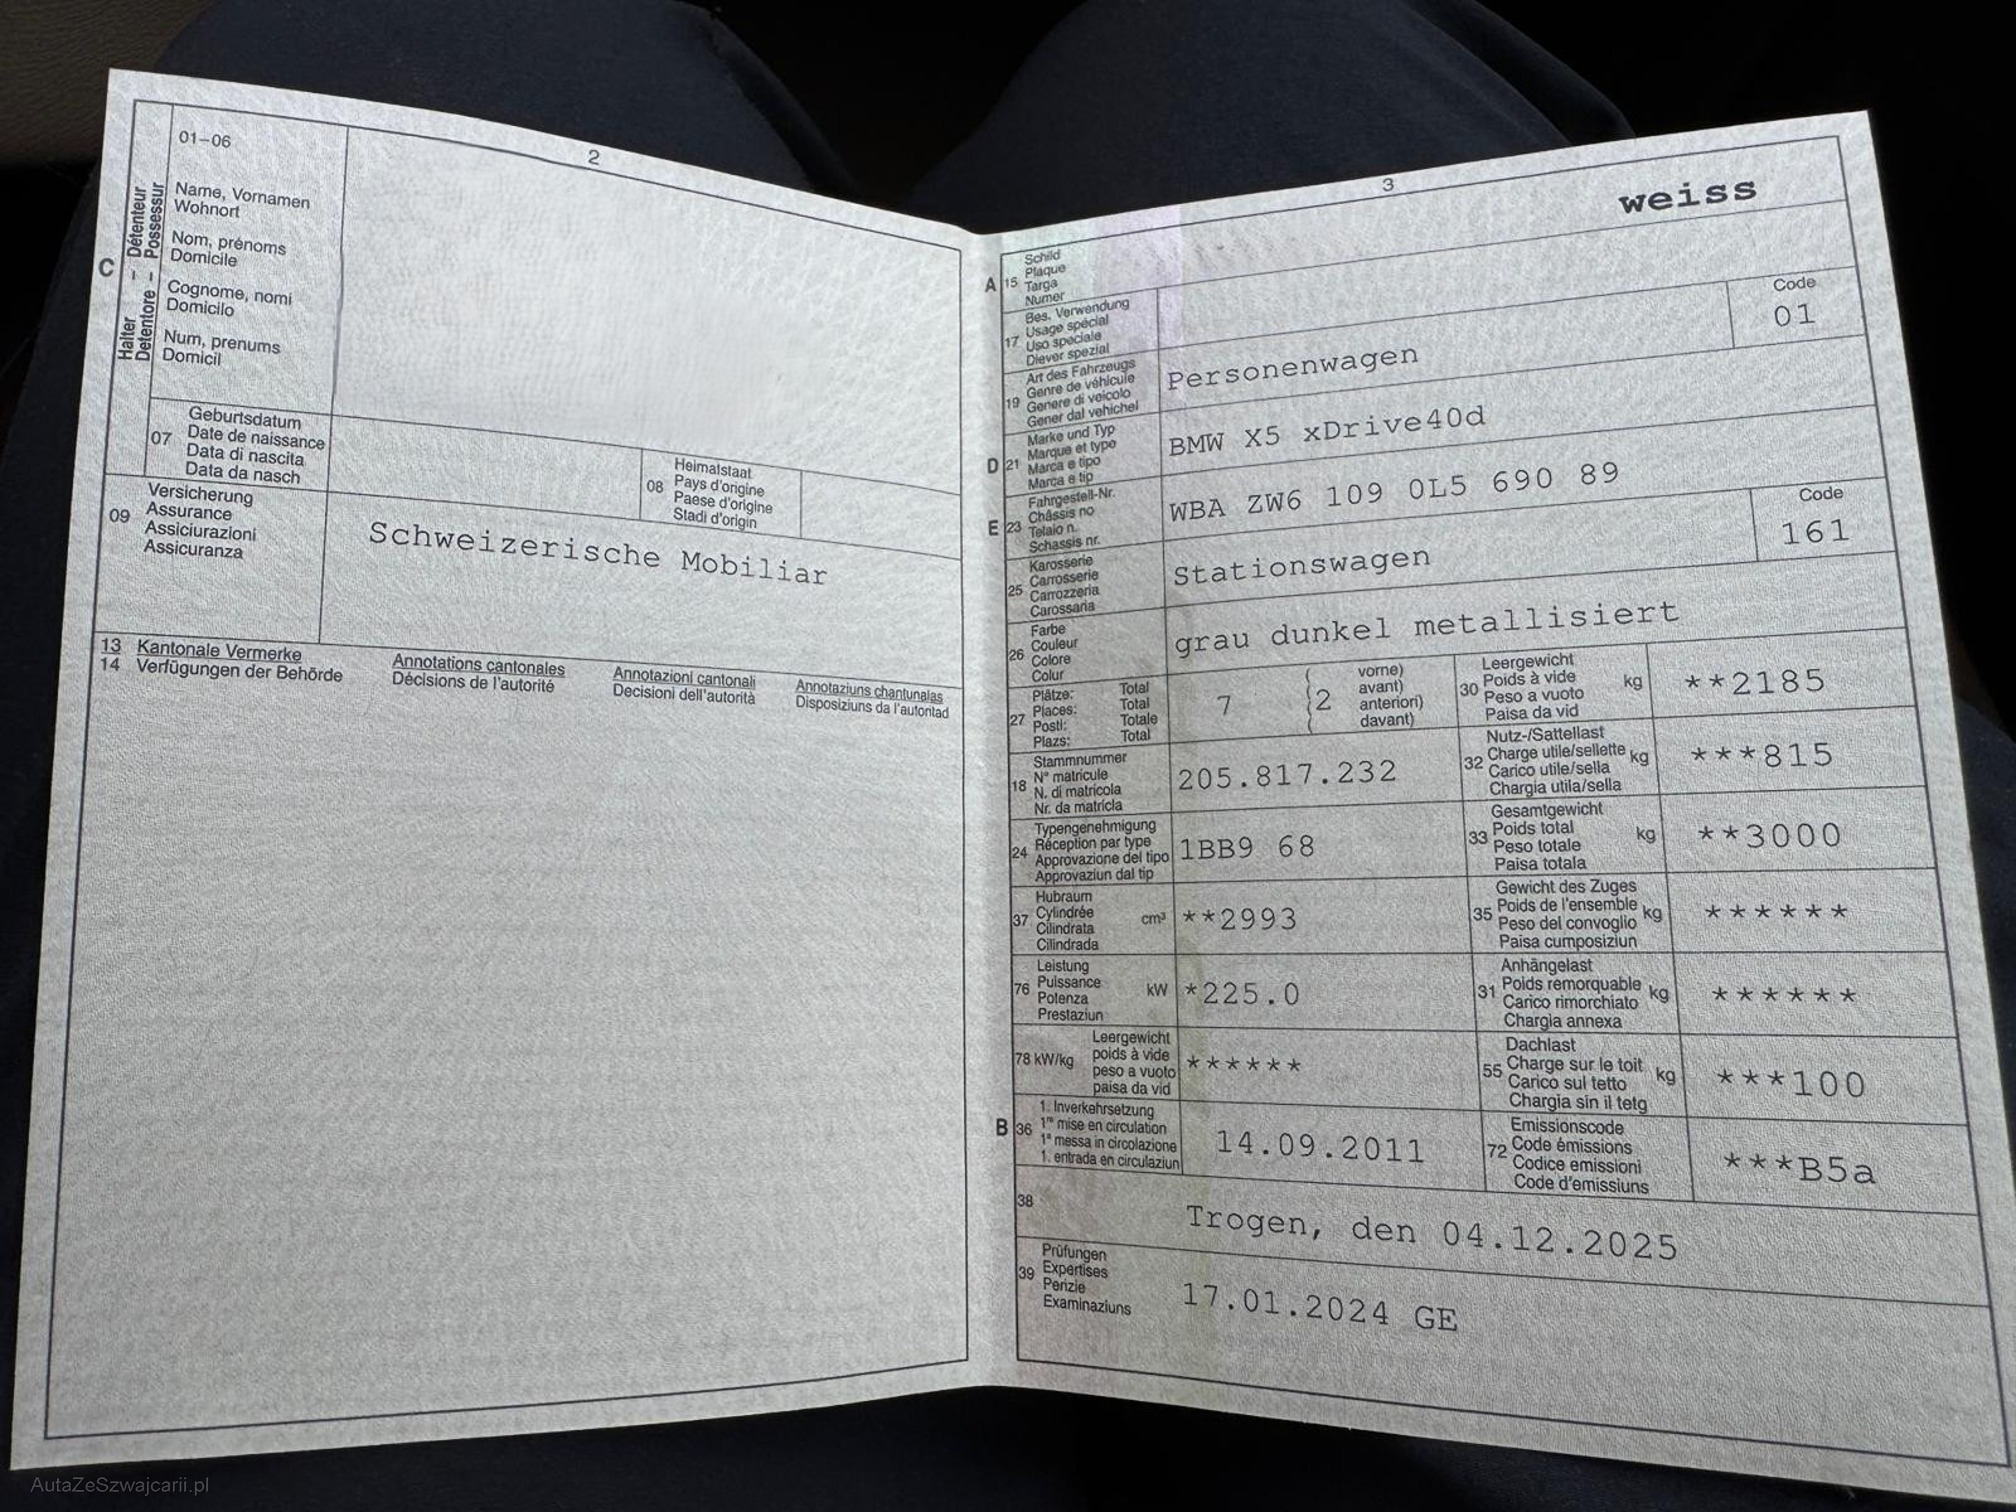 2
01–06
Name, Vornamen
Wohnort
Nom, prénoms
Domicile
Cognome, nomi
Domicilo
Num, prenums
Domicil
C
Halter – Détenteur
Detentore – Possessur
07
Geburtsdatum
Date de naissance
Data di nascita
Data da nasch
08
Heimalstaat
Pays d'origine
Paese d'origine
Stadi d'origin
09
Versicherung
Assurance
Assiciurazioni
Assicuranza
Schweizerische Mobiliar
13 Kantonale Vermerke Annotations cantonales Annotazioni cantonali Annotaziuns chantunalas
14 Verfügungen der Behörde Décisions de l'autorité Decisioni dell'autorità Disposiziuns da l'autoritad
3
weiss
A 15
Schild
Plaque
Targa
Numer
17
Bes. Verwendung
Usage spécial
Uso speciale
Diever spezial
19
Art des Fahrzeugs
Genre de véhicule
Genere di veicolo
Gener dal vehichel
Personenwagen
Code
01
D 21
Marke und Typ
Marque et type
Marca e tipo
Marca e tip
BMW X5 xDrive40d
E 23
Fahrgestell-Nr.
Châssis no
Telaio n.
Schassis nr.
WBA ZW6 109 0L5 690 89
25
Karosserie
Carrosserie
Carrozzeria
Carossaria
Stationswagen
Code
161
26
Farbe
Couleur
Colore
Colur
grau dunkel metallisiert
27
Plätze: Total
Places: Total
Posti: Totale
Plazs: Total
7 2
vorne)
avant)
anteriori)
davant)
30
Leergewicht
Poids à vide
Peso a vuoto
Paisa da vid
kg
**2185
18
Stammnummer
N° matricule
N. di matricola
Nr. da matricla
205.817.232
32
Nutz-/Sattellast
Charge utile/sellette
Carico utile/sella
Chargia utila/sella
kg
***815
24
Typengenehmigung
Réception par type
Approvazione del tipo
Approvaziun dal tip
1BB9 68
33
Gesamtgewicht
Poids total
Peso totale
Paisa totala
kg
**3000
37
Hubraum
Cylindrée
Cilindrata
Cilindrada
cm³
**2993
35
Gewicht des Zuges
Poids de l'ensemble
Peso del convoglio
Paisa cumposiziun
kg
******
76
Leistung
Puissance
Potenza
Prestaziun
kW
*225.0
31
Anhängelast
Poids remorquable
Carico rimorchiato
Chargia annexa
kg
******
78 kW/kg
Leergewicht
poids à vide
peso a vuoto
paisa da vid
******
55
Dachlast
Charge sur le toit
Carico sul tetto
Chargia sin il tetg
kg
***100
B 36
1. Inverkehrsetzung
1re mise en circulation
1a messa in circolazione
1. entrada en circulaziun
14.09.2011
72
Emissionscode
Code émissions
Codice emissioni
Code d'emissiuns
***B5a
38
Trogen, den 04.12.2025
39
Prüfungen
Expertises
Perizie
Examinaziuns
17.01.2024 GE
AutaZeSzwajcarii.pl